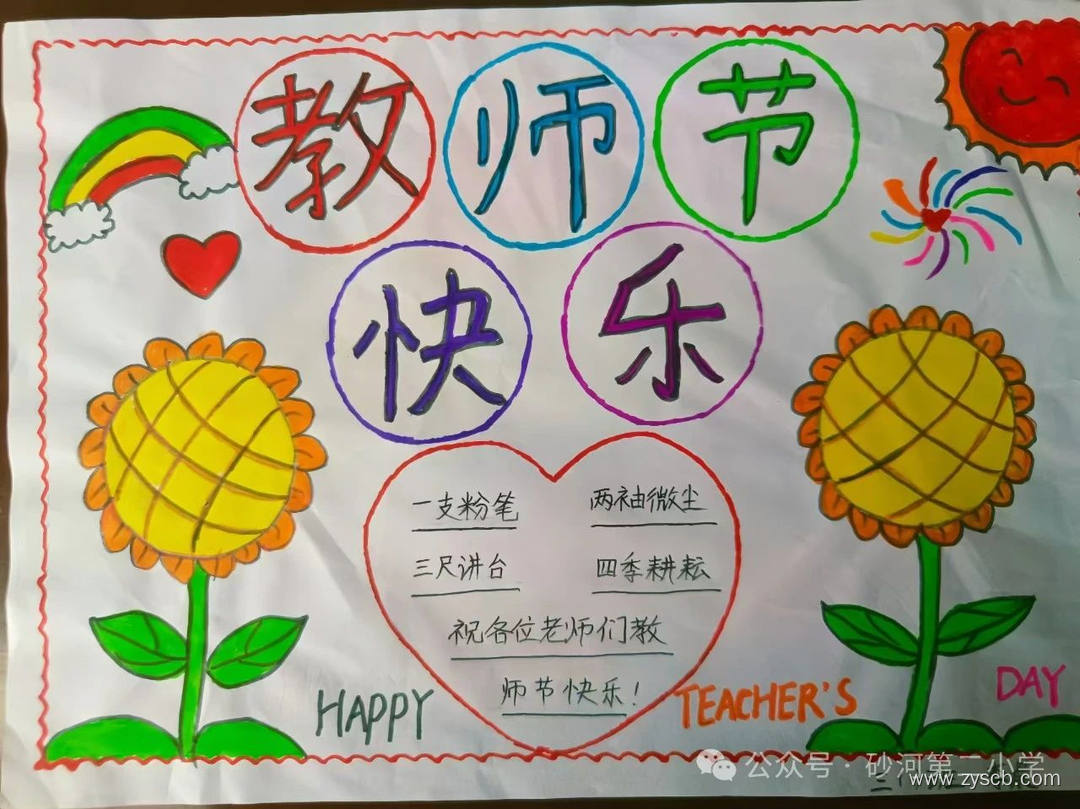 教师节
快乐
一支粉笔 两袖微尘
三尺讲台 四季耕耘
祝各位老师们教
师节快乐!
HAPPY TEACHER'S DAY
公众号·砂河第二小学
www.zyscb.com